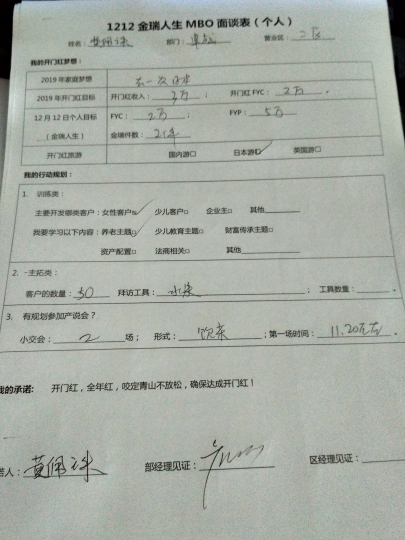 1212 金瑞人生 MBO 面谈表（个人）
姓名：黄佩珠 部门：卓越 营业区：二区
我的开门红梦想：
2019 年家庭梦想 去一次日本
2019 年开门红目标 开门红收入：3万； 开门红 FYC：2万。
12 月 12 日个人目标 FYC：2万； FYP：5万
（金瑞人生） 金瑞件数：2件
开门红旅游 国内游□ 日本游☑ 英国游□
我的行动规划：
1. 训练类：
主要开发哪类客户：女性客户☑ 少儿客户□ 企业主□ 其他
我要学习以下内容：养老主题☑ 少儿教育主题□ 财富传承主题□
资产配置□ 法商相关□ 其他
2. 主拓类：
客户的数量：50 拜访工具：水果； 工具数量：。
3. 有规划参加产说会？
小交会：2 场； 形式：饮茶；第一场时间：11.20左右。
我的承诺： 开门红，全年红，咬定青山不放松，确保达成开门红！
诺人：黄佩珠 部经理见证： 区经理见证：